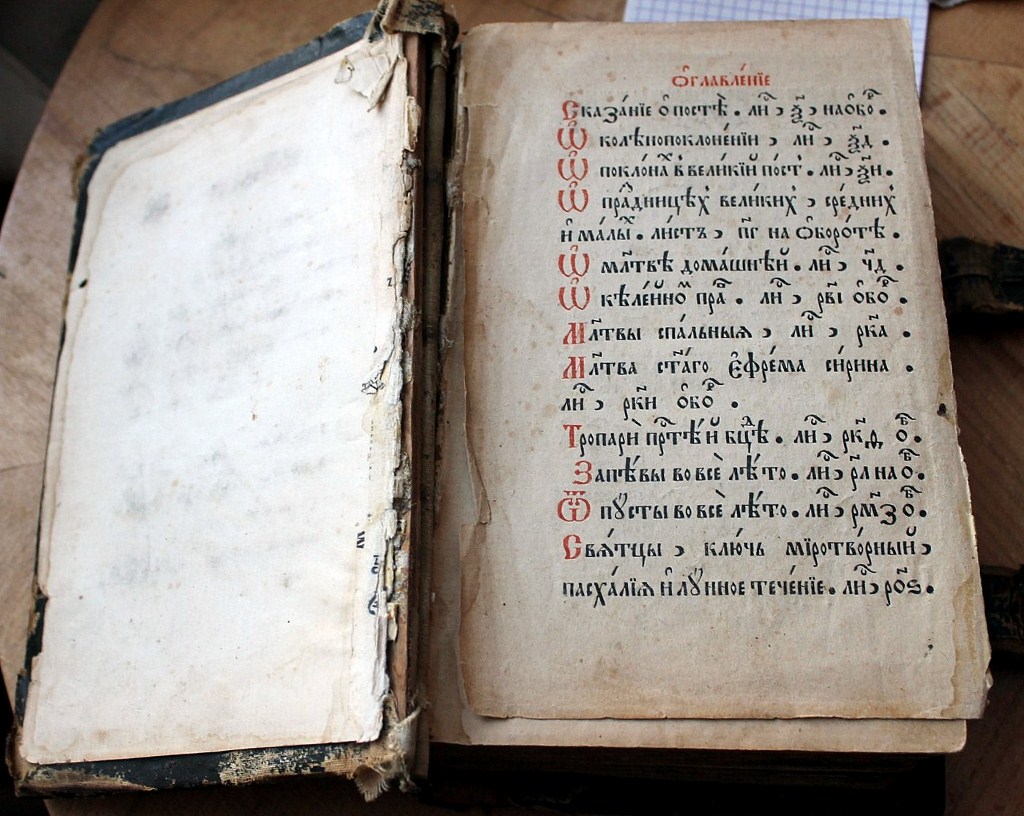 Ѻ҆главле́нїе
Сказа́нїе ѻ҆ постѣ̀ . лиⷭ҇ , ѯ҃ , на ѻ҆боⷬ҇ .
Ѡ колѣнопоклоне́нїи , лиⷭ҇ , ѯ҃д .
Ѡ покло́наⷯ в̾ вели́кїй по́стъ . лиⷭ҇ , ѯ҃и .
Ѡ пра́ⷥдницѣхъ вели́кихъ , сре́днихъ
и҆ ма́лыⷯ . ли́стъ , п҃г на ѻ҆боро́тѣ .
Ѡ мл҃твѣ дома́шнѣй . лиⷭ҇ , ч҃д .
Ѡ кѣле́йноⷨ праⷡ҇ . лиⷭ҇ , рв҃і ѻ҆боⷬ҇ .
Мл҃твы спа́льныѧ , лиⷭ҇ , рк҃а .
Мл҃тва ст҃а́гѡ є҆фре́ма си́рина .
лиⷭ҇ , рк҃и ѻ҆боⷬ҇ .
Тропарѝ прⷭ҇тѣ́й бцⷣѣ . лиⷭ҇ , рк҃ѳ ѻ҆ⷠ҇ .
Запѣ́вы во всѐ лѣ́то . лиⷭ҇ , рл҃ на ѻ҆ⷠ҇ .
Ѿпꙋсты во всѐ лѣ́то . лиⷭ҇ , рм҃з ѻ҆ⷠ҇ .
Свѧ́тцы , клю́чь мїротво́рный ,
пасха́лїѧ и҆ лꙋ́нное тече́нїе . лиⷭ҇ , ро҃ѕ .